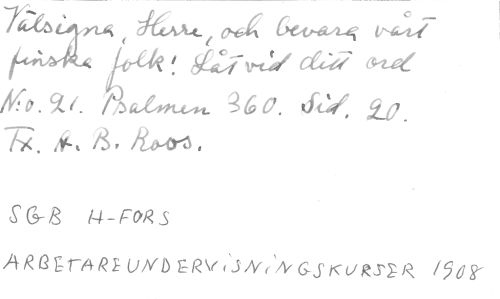 Välsigna, Herre, och bevara vårt
finska folk! Låt vid ditt ord
N:o. 21. Psalmen 360. Sid. 20.
Tx. A. B. Roos.
SGB H-FORS
ARBETAREUNDERVISNINGSKURSER 1908